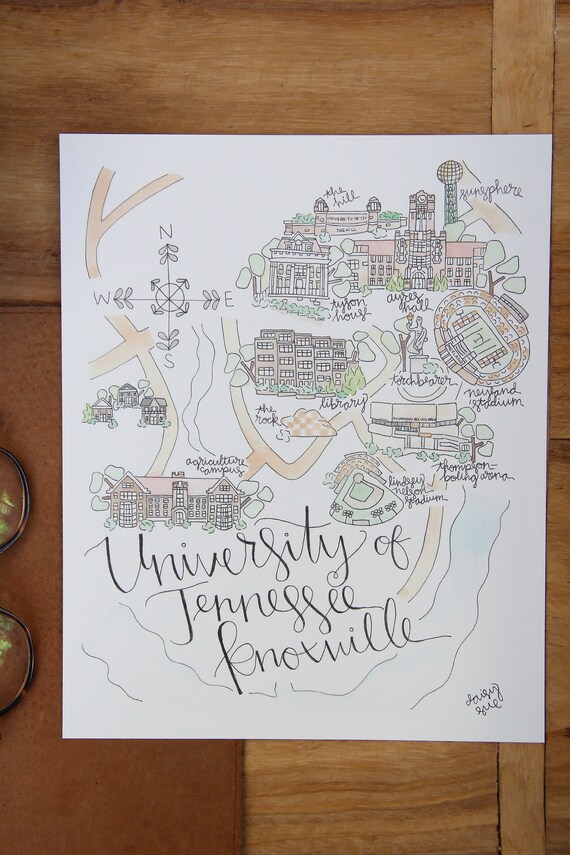 the
hill
UNIVERSITY OF TN
THE HILL
sunsphere
tyson
house
ayres
hall
N
W
E
S
torchbearer
neyland
stadium
library
the
rock
agriculture
campus
lindsey
nelson
stadium
thompson-
boling arena
University of
Tennessee
Knoxville
daisy
sue